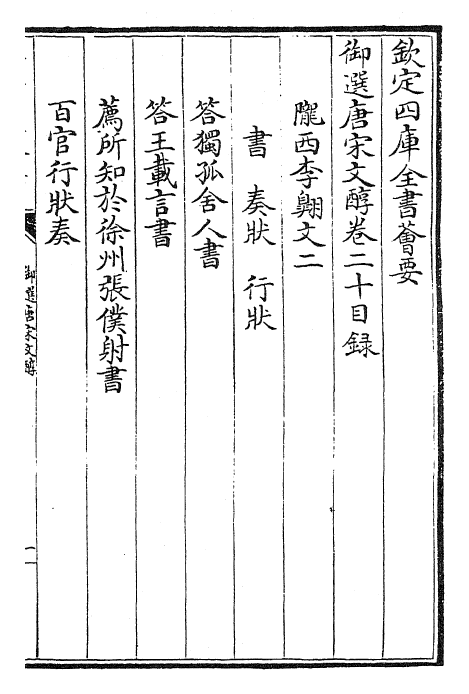 欽定四庫全書薈要
御選唐宋文醇卷二十目録
隴西李翺文二
書　奏狀　行狀
答獨孤舍人書
答王載言書
薦所知於徐州張僕射書
百官行狀奏
御選唐宋文醇
一